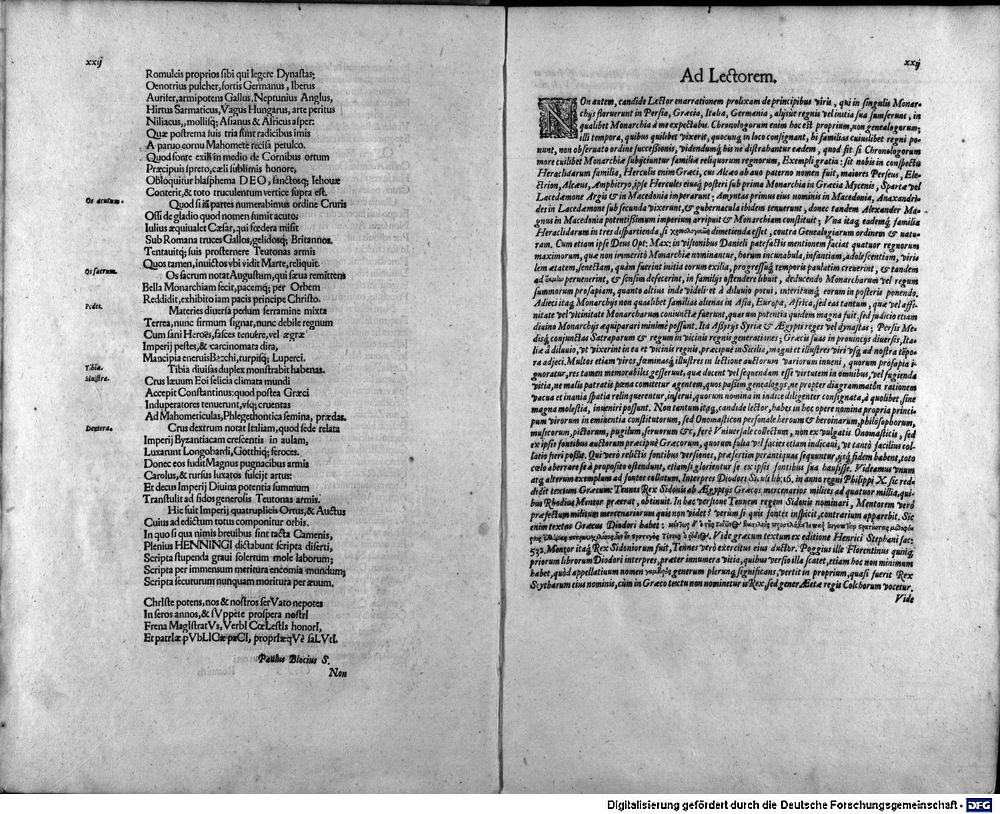 xxij
Romuleis proprios sibi qui legere Dynastas;
Oenotrius pulcher, fortis Germanus, Iberus
Aurifer, armipotens Gallus, Neptunius Anglus,
Hirtus Sarmaticus, Vagus Hungarus, arte peritus
Niliacus, mollisq; Asianus & Africus asper.
Quæ postrema suis tria sunt radicibus imis
A paruo cornu Mahomete recisa petulco.
Quod fonte exili in medio de Cornibus ortum
Præcipuis spreto, cæli sublimis honore,
Obloquitur blasphema DEO, sanctosq; Iehouæ
Conterit, & toto truculentum vertice supra est.
Os acutum.
Quod si iã partes numerabimus ordine Cruris
Ossi de gladio quod nomen sumit acuto:
Iulius æquiualet Cæsar, qui fœdera misit
Sub Romana truces Gallos, gelidosq; Britannos.
Tentauitq; suis prosternere Teutonas armis
Quos tamen, inuictos vbi vidit Marte, reliquit.
Os sacrum.
Os sacrum notat Augustum, qui sæua remittens
Bella Monarchiam fecit, pacemq; per Orbem
Reddidit, exhibito iam pacis principe Christo.
Pedes.
Materies diuersa pedum ferramine mixta
Terrea, nunc firmum signat, nunc debile regnum
Cum sani Heroës, fasces tenuêre, vel ægræ
Imperij pestes, & carcinomata dira,
Mancipia eneruis Bacchi, turpisq; Luperci.
Tibiæ.
Tibia diuisas duplex monstrabit habenas.
Sinistra.
Crus læuum Eoi felicia climata mundi
Accepit Constantinus: quod postea Græci
Induperatores tenuerunt, vsq; cruentas
Ad Mahometiculas, Phlegethontica semina, prædas.
Dextera.
Crus dextrum notat Italiam, quod sede relata
Imperij Byzantiacam crescentis in aulam,
Luxarunt Longobardi, Gotthiq; feroces.
Donec eos fudit Magnus pugnacibus armis
Carolus, & rursus luxatos fulcijt artus:
Et decus Imperij Diuina potentia summum
Transtulit ad fidos generosis Teutonas armis.
Hic fuit Imperij quatruplicis Ortus, & Auctus
Cuius ad edictum totus componitur orbis.
In quo si qua nimis breuibus sint tacta Camenis,
Plenius HENNINGI dictabunt scripta diserti,
Scripta stupenda graui solertum mole laborum;
Scripta per immensum meritura encomia mundum;
Scripta secuturum nunquam moritura per æuum.
ChrIste potens, nos & nostros serVato nepotes
In seros annos, & sVppete prospera nostrI
Frena MagIstratVs, VerbI CœLestIs honorI,
Et patrIæ pVbLICæ paCI, proprIæqVè saLVtI.
Paulus Blocius S.
Non
xxij
Ad Lectorem.
NOn autem, candide Lector enarrationem prolixam de principibus viris, qui in singulis Monar-
chijs floruerunt in Persia, Græcia, Italia, Germania, alijsue regnis vel initia sua sumserunt, in
qualibet Monarchia à me expectabis. Chronologorum enim hoc est proprium, non genealogorum;
illi tempora, quibus quilibet vixerit, quocunq; in loco consignant, hi familias cuiuslibet regni po-
nunt, non obseruato ordine successionis, videndumq; his ne distrabantur eædem, quod fit si Chronologorum
more cuilibet Monarchiæ subijciuntur familiæ reliquorum regnorum, Exempli gratia: sit nobis in conspectu
Heraclidarum familia, Herculis enim Græci, cus Alcæo ab auo paterno nomen fuit, maiores Perseus, Ele-
ctrion, Alcæus, Amphitryo, ipse Hercules eiusq; posteri sub prima Monarchia in Græcia Mycenis, Spartæ vel
Lacedæmone Argis & in Macedonia imperarunt; Amyntas primus eius nominis in Macedonia, Anaxandri-
des in Lacedæmone sub secunda vixerunt, & gubernacula ibidem tenuerunt, donec tandem Alexander Ma-
gnus in Macedonia potentissimum imperium arripuit & Monarchiam constituit; Vna itaq; eademq; familia
Heraclidarum in tres dispartienda, si χρονολογικῶς dimetienda esset, contra Genealogiarum ordinem & natu-
ram. Cum etiam ipse Deus Opt: Max: in visionibus Danieli patefactis mentionem faciat quatuor regnorum
maximorum, quæ non immeritò Monarchiæ nominantur, horum incunabula, infantiam, adolescentiam, viri-
lem ætatem, senectam, quàm fuerint initia eorum exilia, progressuq; temporis paulatim creuerint, & tandem
ad peruenerint, & sensim defecerint, in familijs ostendere libuit, deducendo Monarcharum vel regum
summorum prosapiam, quanto altius inde videlicet à diluvio potui, interitumq; eorum in posteris ponendo.
Adieci itaq; Monarchijs non quaslibet familias alienas in Asia, Europa, Africa, sed eas tantum, quæ vel affi-
nitate vel vicinitate Monarcharum coniunctæ fuerunt, quarum potentia quidem magna fuit, sed judicio etiam
diuino Monarchijs æquiparari minimè possunt. Ita Assyrijs Syriæ & Ægypti reges vel dynastas; Persis Me-
disq; conjunctas Satraparum & regum in vicinis regnis generationes; Græcis suas in prouincijs diuersis, Ita-
liæ à diluuio, vt vixerint in ea et vicinis regnis, præcipuè in Sicilia, magni et illustres viri vsq; ad nostra tẽpo-
ra adjeci. Multos etiam viros, feminasq; illustres in lectione auctorum variorum inueni, quorum prosapia i-
gnoratur, res tamen memorabiles gesserunt, quæ docent vel sequendam esse virtutem in omnibus, vel fugienda
vitia, ne malis patratis pœna comitetur agentem, quos passim genealogijs, ne propter diagrammatõn rationem
vacua et inania spatia relinquerentur, inserui, quorum nomina in indice diligenter consignata, à quolibet, sine
magna molestia, inueniri possunt. Non tantum itaq;, candide lector, habes in hoc opere nomina propria princi-
pum virorum in eminentia constitutorum, sed Onomasticon personale heroum & heroinarum, philosophorum,
musicorum, pictorum, pugilum, seruorum &c, ferè Vniuersale collectum, non ex vulgatis Onomasticis, sed
ex ipsis fontibus auctorum præcipuè Græcorum, quorum folia vel facies etiam indicaui, vt tantò facilius col-
latio fieri possit. Qui verò relictis fontibus versiones, præsertim perantiquas sequuntur, ijsq; fidem habent, toto
cœlo aberrare se à proposito ostendunt, etiamsi glorientur se ex ipsis fontibus sua hausisse. Videamus vnum
atq; alterum exemplum ad fontes collatum. Interpres Diodori Siculi lib: 16. in anno regni Philippi X. sic red-
didit textum Græcum: Tennes Rex Sidonis ab Ægyptijs Græcos mercenarios milites ad quatuor millia, qui-
bus Rhodius Mentor præerat, obtinuit. In hac versione Tennem regem Sidonis nominari, Mentorem verò
præfectum militum mercenariorum quis non videt? verùm si quis fontes inspicit, contrarium apparebit. Sic
enim textus Græcus Diodori habet:
Vide græcum textum ex editione Henrici Stephani fac:
532. Mentor itaq; Rex Sidoniorum fuit, Tennes verò exercitus eius ductor. Poggius ille Florentinus quinq;
priorum librorum Diodori interpres, præter innumera vitia, quibus versio illa scatet, etiam hoc non minimum
habet, quòd appellatiuum nomen γαμβρός generum plerunq; significans, vertit in proprium, quasi fuerit Rex
Scytharum eius nominis, cùm in Græco textu non nominetur is Rex, sed gener Æetæ regis Colchorum vocetur.
Vide
Digitalisierung gefördert durch die Deutsche Forschungsgemeinschaft - DFG